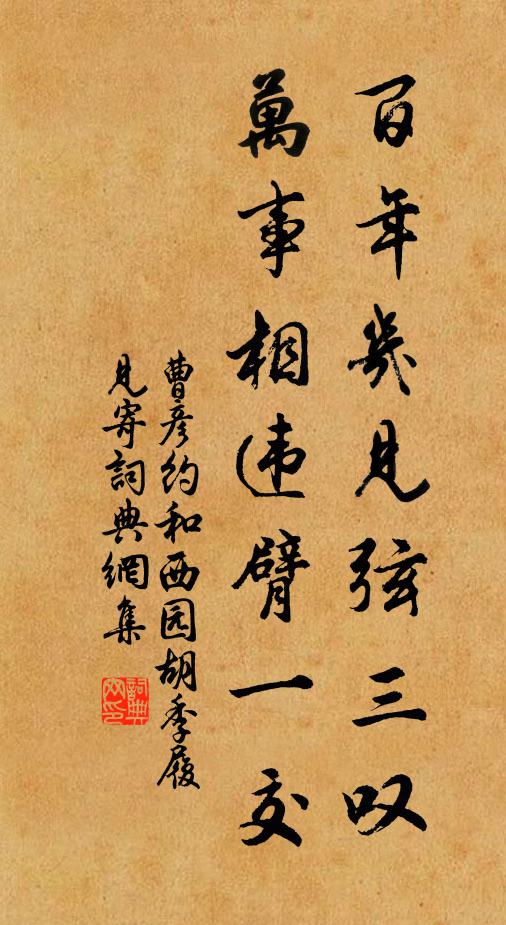 百年幾見弦三叹
萬事相违臂一交
曹彦约和西园胡季履
見寄詞典網集
詞典
网印